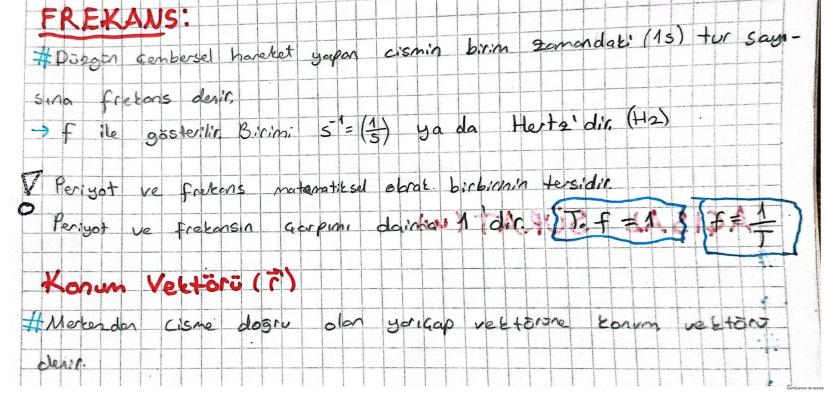 FREKANS:
#Düzgün çembersel hareket yapan cismin birim zamandaki (1s) tur sayı-
sına frekans denir.
→ f ile gösterilir. Birimi s⁻¹=(1/s) ya da Hertz'dir. (Hz)
! Periyot ve frekans matematiksel olarak birbirinin tersidir.
Periyot ve frekansın çarpımı daima 1'dir. T. f = 1 f = 1/T
Konum Vektörü (r⃗)
#Merkezden cisme doğru olan yarıçap vektörüne konum vektörü
denir.